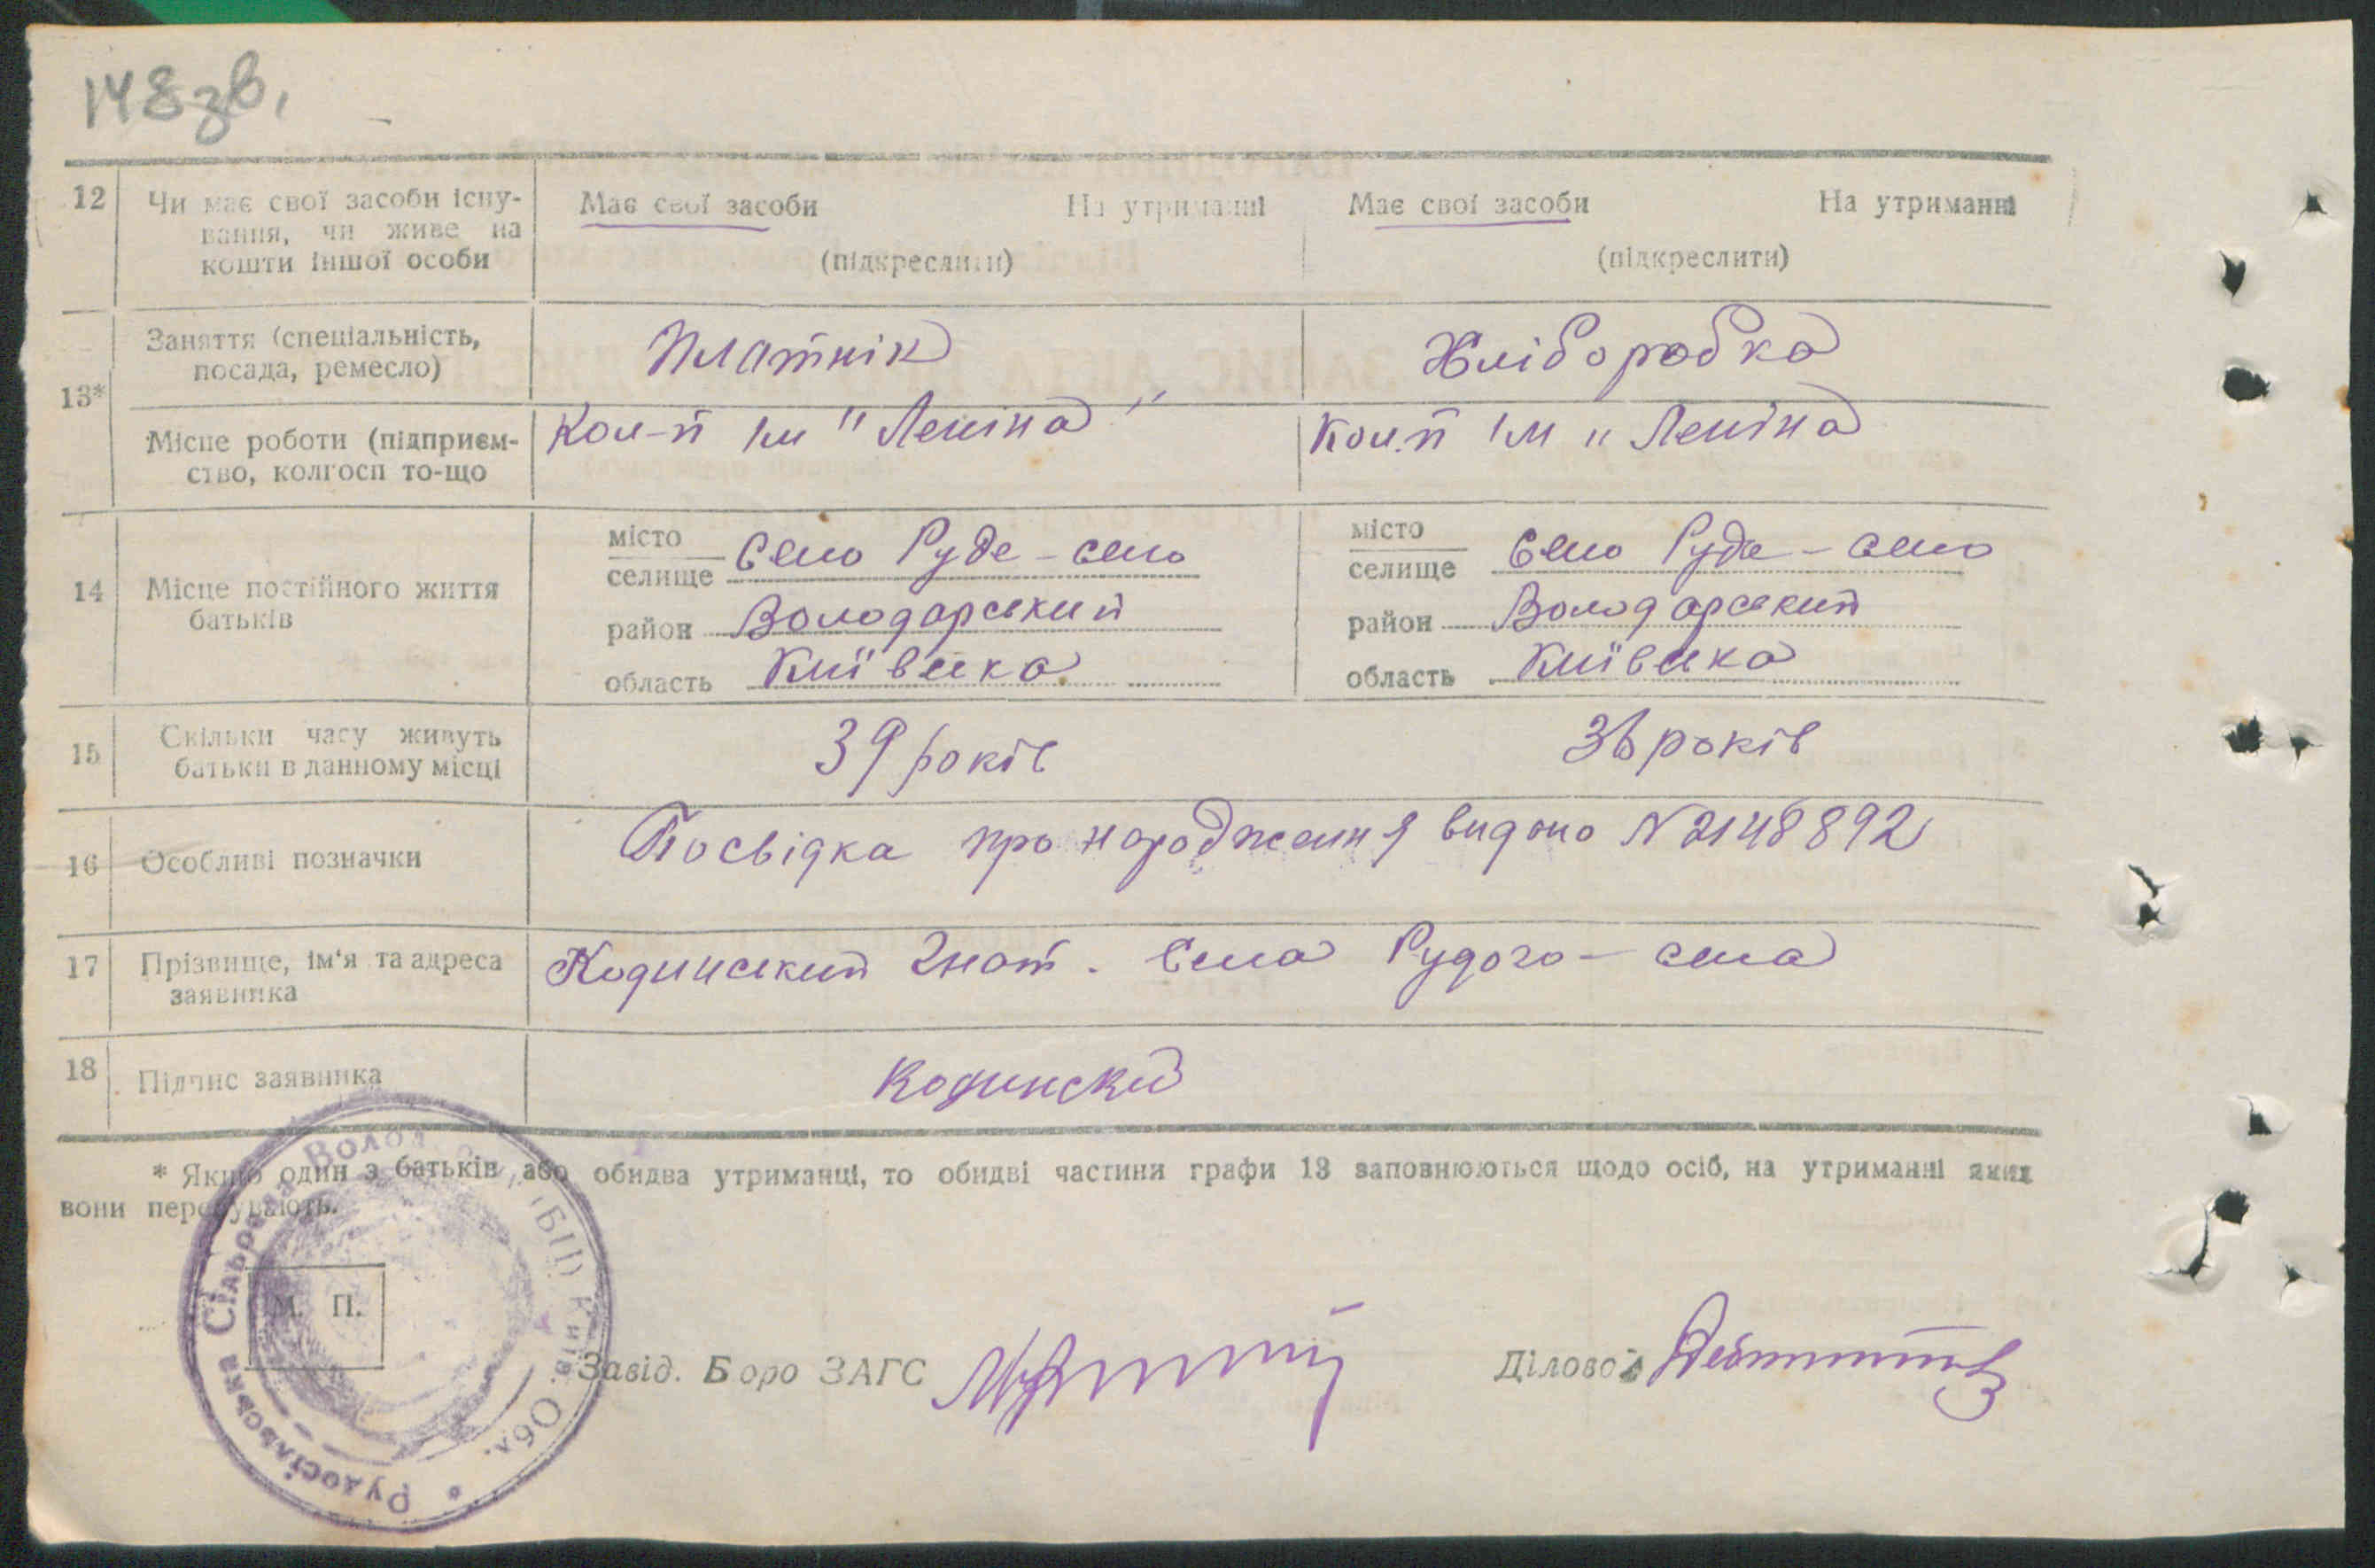 148зв.
12 Чи має свої засоби існу-
вання, чи живе на
кошти іншої особи
Має свої засоби На утриманні
(підкреслити)
Має свої засоби На утриманні
(підкреслити)
13*
Заняття (спеціальність,
посада, ремесло)
Платнік
Хліборобка
Місце роботи (підприєм-
ство, колгосп то-що
Кол-п ім "Леніна"
Кол.п ім „ Леніна
14 Місце постійного життя
батьків
місто
селище Село Руде-село
район Володарський
область Київська
місто
селище Село Руде-село
район Володарський
область Київська
15 Скільки часу живуть
батьки в данному місці
39 років
36 років
16 Особливі позначки
Посвідка про народження видано N 2148892
17 Прізвище, ім'я та адреса
заявника
Кодинський Гнат. Села Рудого-села
18 Підпис заявника
Кодинский
* Якщо один з батьків, або обидва утриманці, то обидві частини графи 13 заповнюються щодо осіб, на утриманні яких
вони перебувають.
М. П.
Рудосільська Сільрада Волод. Київ. Обл.
Завід. Бюро ЗАГС
Діловод